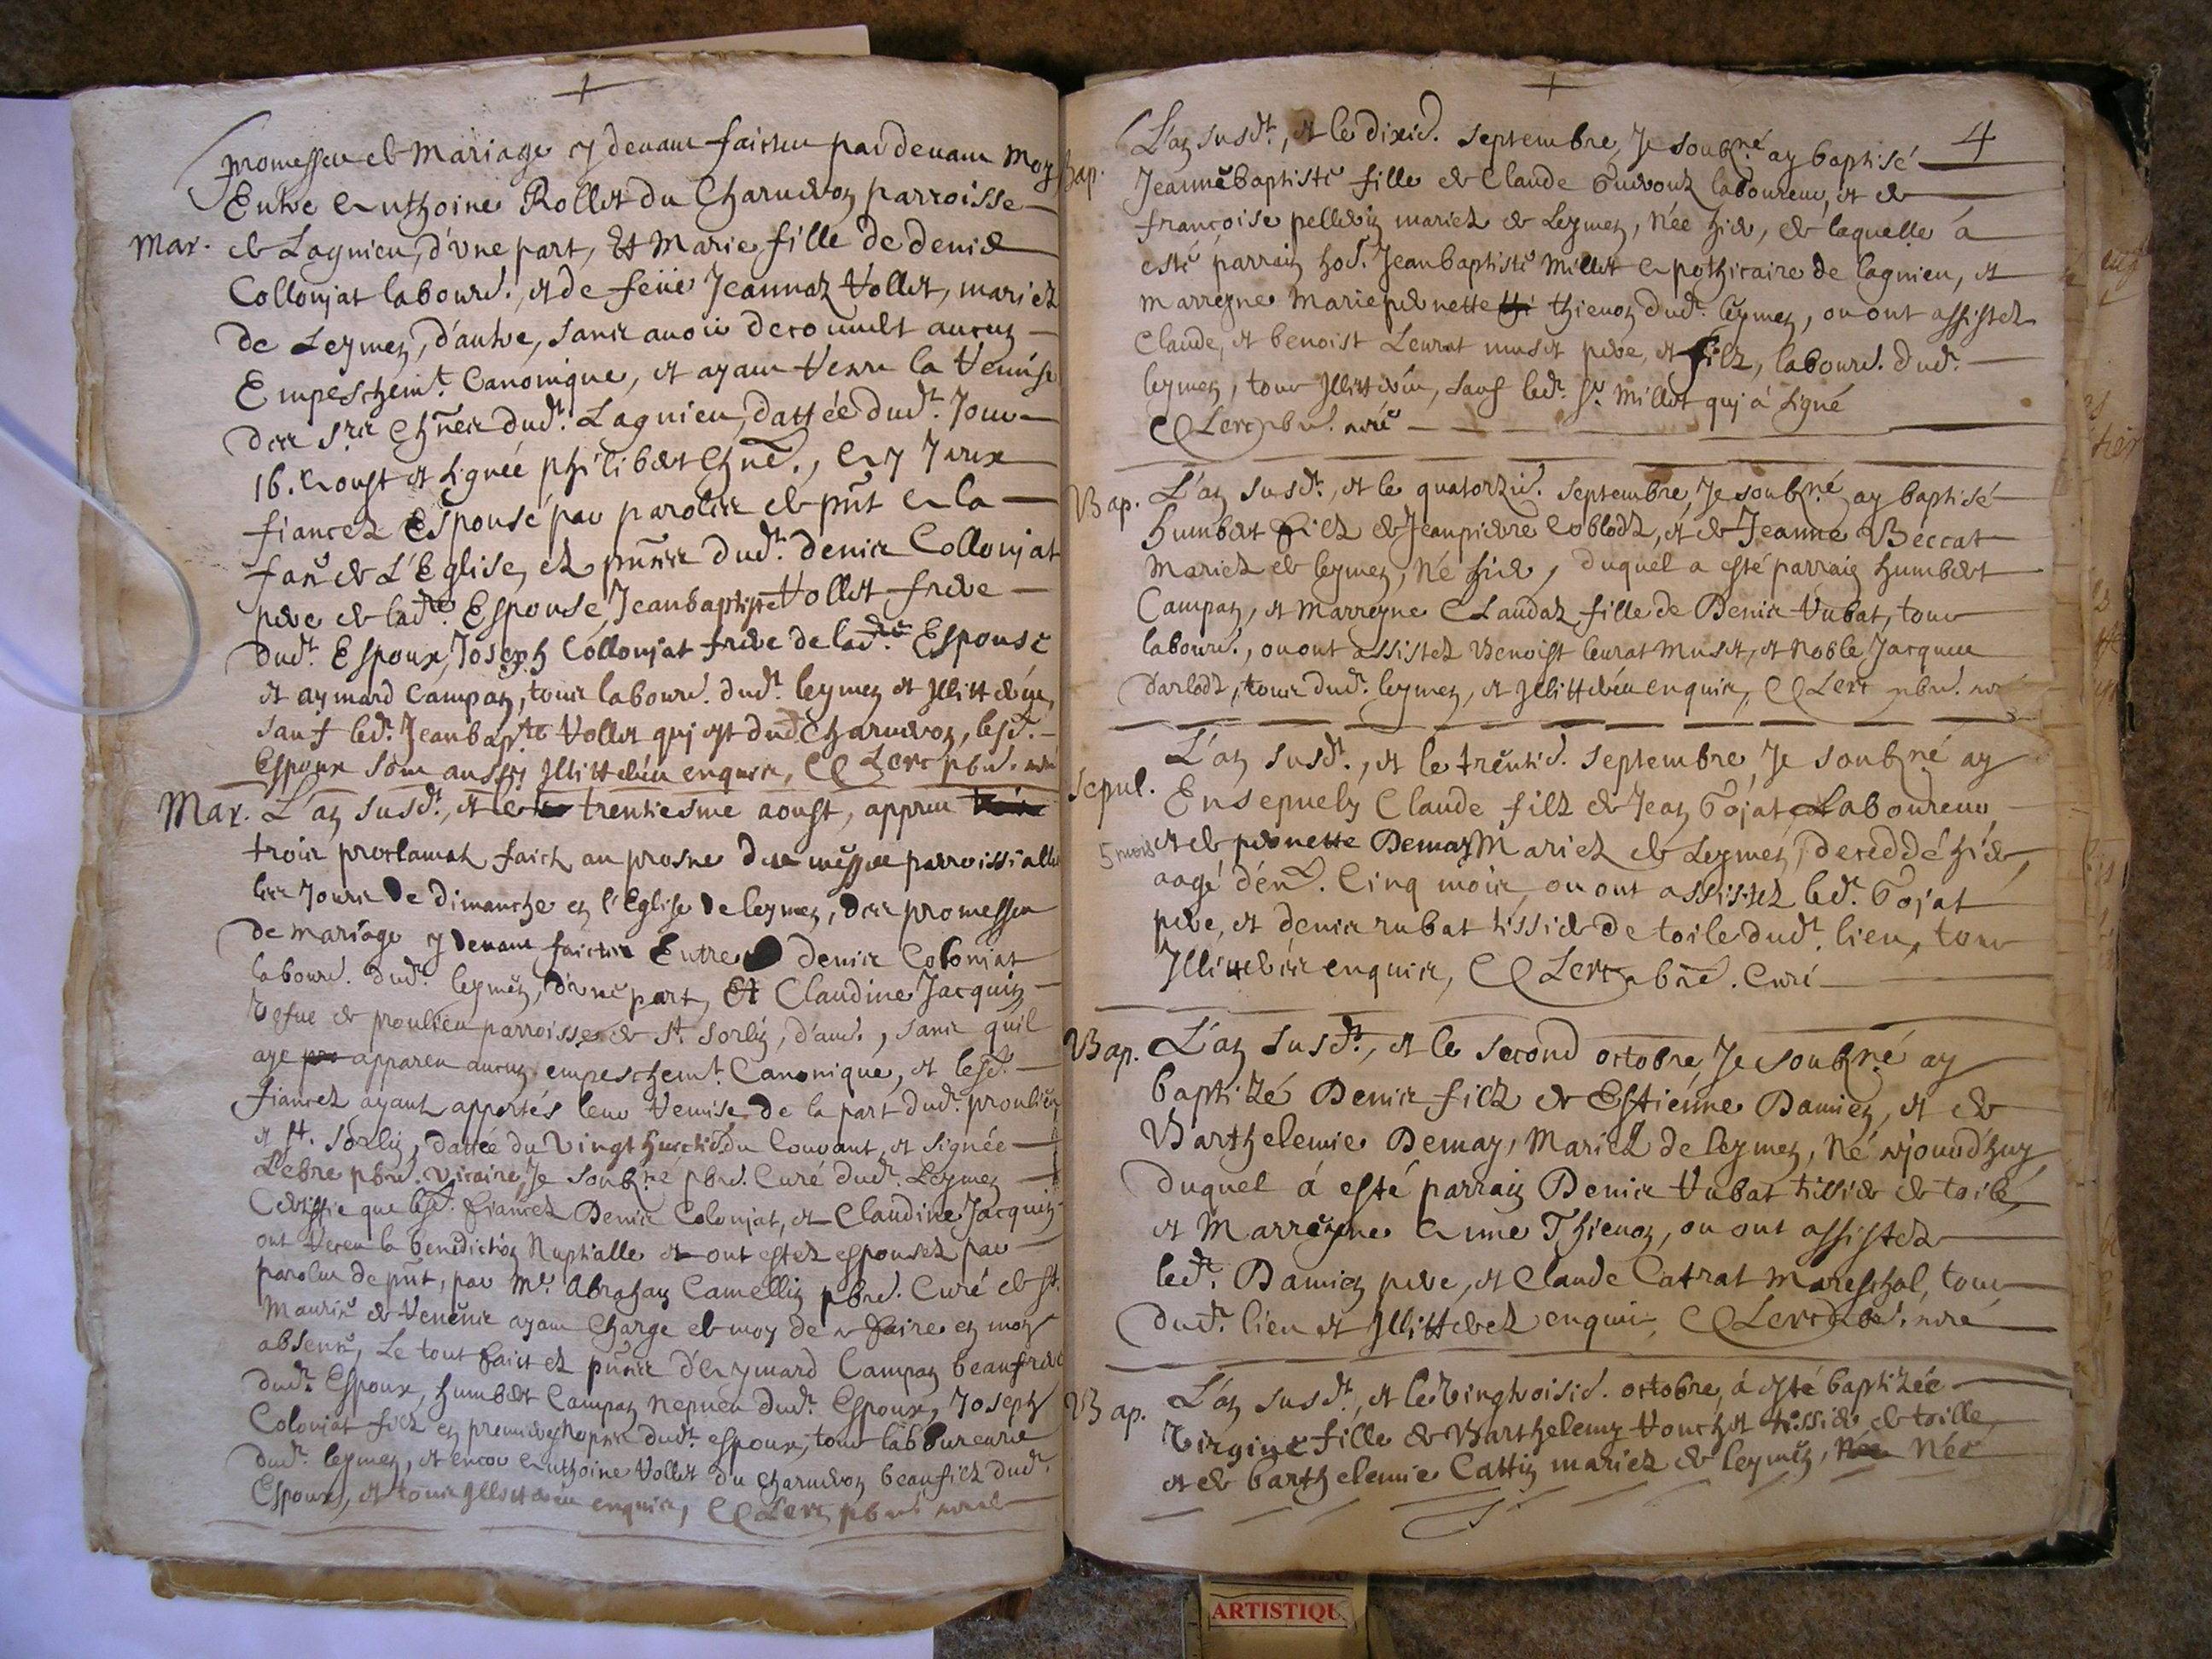 promesses de Mariage cy devant faictes par devant moy
Entre Anthoine Rollet du Charveron parroisse
Mar. de Lagnieu, d'vne part, Et Marie fille de denis
Collonjat labour., et de feüe Jeannaz Vollet, mariez
de Leymen, d'autre, sans avoir decouvert aucun
Empeschemt. Canonique, et ayant veu la remise
des srs dudt. Lagnieu, dattée dudt. Jour
16. Aoust et signée philibert, Ay Jceux
fiancez Espousé par parolles de pnt A la
face de L'Eglise, ez pnces dudt. denis Collonjat
pere de ladte. Espouse, Jeanbaptiste Vollet frere
dudt. Espoux, Joseph Collonjat frere de ladte. Espouse
et aymard Campan, tous labour. dudt. leymen et Jllitterés,
sauf ledt. Jeanbapte Vollet qui est dudt. Charveron, lesd.
Espoux sont aussy Jllitterés enquis, CLerc pbre. curé
Mar. L'an susdt., et le trentiesme aoust, appres
trois proclamat. faict. au prosne des messes parroissialles
les Jours de Dimanche en l'Eglise de leymen, des promesses
de mariage cy devant faictes Entre denis Colonjat
labour. dudt. leymen, d'vne part, Et Claudine Jacquin
vefue de proulieu parroisse de St. Sorlin, d'aut., sans quil
aye apparu aucun empeschemt. Canonique, et lesd.
fiancez ayant apportés leur remise de la part dudt. proulieu
et St. Sorlin, dattée du vingt huictie. du Courant, et signée
Lebre pbre. vicaire, Je soubsné pbre. Curé dudt. Leymen
Certiffie que lesd. fiancez Denis Colonjat, et Claudine Jacquin
ont receu la benediction Nuptialle et ont estez espousez par
parolles de pnt, par Mre. Abraham Camellin pbre. Curé de St.
Maurice de remens ayant Charge de moy de ce faire en mon
absence, Le tout faict ez pnces d'Aymard Campan beaufrere
dudt. Espoux, humbert Campan nepueu dudt. Espoux, Joseph
Colonjat filz en premieres nopces dudt. espoux, tous laboureurs
dudt. leymen, et encor Anthoine Vollet du Charveron beaufilz dudt.
Espoux, et tous Jllitterés enquis, CLerc pbre. curé
4
Bap. L'an susdt., et le dixie. septembre, Je soubsné ay baptisé
Jeannebaptiste fille de Claude laboureur, et de
françoise pellerin mariez de Leymen, née hier, de laquelle á
esté parrain ho. Jeanbaptiste Millet Apothicaire de lagnieu, et
marreyne Marie pernette thienon dudt. leymen, ou ont assistez
Claude, et benoist Leurat muset pere, et filz, labour. dudt.
leymen, tous Jllitterés, sauf ledt. sr. Millet qui á signé
CLerc pbre. curé
Bap. L'an susdt., et le quatorzie. septembre, Je soubsné ay baptisé
humbert filz de Jeanpierre Coblodz, et de Jeanne Beccat
Mariez de leymen, Né hier, duquel a esté parrain humbert
Campan, et Marreyne CLaudaz fille de Denis Rubat, tous
labour., ou ont assistez Benoist leurat Muset, et Noble Jacques
darlodz, tous dudt. leymen, et Jllitterés enquis, CLerc pbre. curé
Sepul. L'an susdt., et le trentie. septembre, Je soubsné ay
Ensepuely Claude filz de Jean Gojat Laboureur
5 mois et de pernette Demay Mariez de Leymen, decedé hier,
aagé d'env. Cinq mois, ou ont assistez ledt. Gojat
pere, et denis rubat tissier de toile dudt. lieu, tous
Jllitterés enquis, CLerc pbre. Curé
Bap. L'an susdt., et le second octobre, Je soubsné ay
baptizé Denis filz de Estienne Damien, et de
Barthelemie Demay, Mariez de leymen, Né ajourd'huy
duquel á esté parrain Denis Rubat tissier de toile,
et Marreyne Anne Thienon, ou ont assistez
ledt. Damien pere, et Claude Catrat Mareschal, tous
dudt. lieu et Jllitterez enquis, CLerc pbre. curé
Bap. L'an susdt., et le vingtroisie. octobre, á esté baptizée
Virgine fille de Barthelemy Vonchet tissier de toille,
et de barthelemie Cattin mariez de leymen, Née
ARTISTIQU